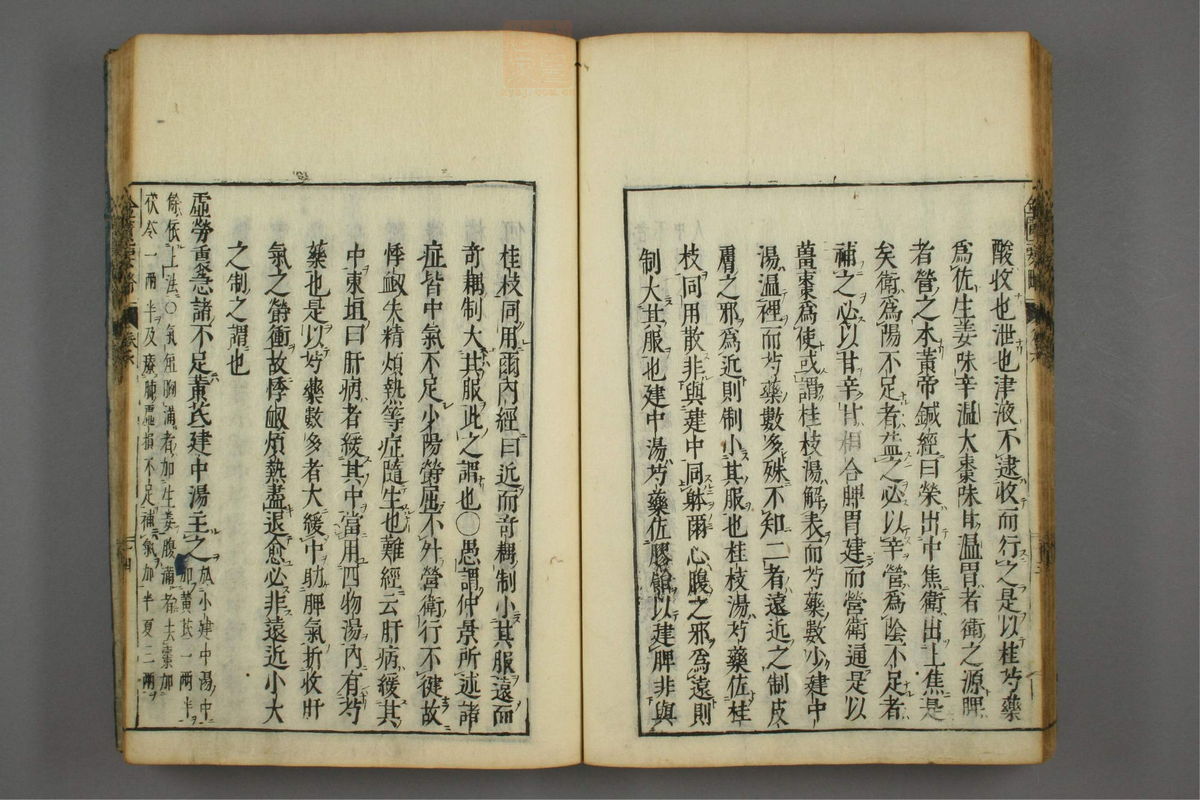 酸收也泄也津液不逮收而行之是以桂芍藥
爲佐生姜味辛温大棗味甘温胃者衛之源脾
者營之本黃帝鍼經曰榮出中焦衛出上焦是
矣衛爲陽不足者益之必以辛營爲陰不足者
補之必以甘辛甘相合脾胃建而營衛通是以
薑棗爲使或謂桂枝湯解表而芍藥數少建中
湯温裡而芍藥數多殊不知二者遠近之制皮
膚之邪爲近則制小其服也桂枝湯芍藥佐桂
枝同用散非與建中同躰爾心腹之邪爲遠則
制大其服也建中湯芍藥佐膠飴以建脾非與
桂枝同用爾內經曰近而奇耦制小其服遠而
奇耦制大其服此之謂也○愚謂仲景所述諸
症皆中氣不足少陽欝盛不外營衛行不健故
悸衂失精煩熱等症隨生也難經云肝病緩其
中東垣曰肝病者緩其中當用四物湯內有芍
藥也是以芍藥數多者大緩中助脾氣折收肝
氣之欝衝故悸衂煩熱盡退愈必非遠近小大
之制之謂也
虛勞裏急諸不足黃芪建中湯主之
於小建中湯中加黃芪一兩半
餘依上法○氣短胸滿者加生姜腹滿者去棗加
茯苓一兩半及療肺虛損不足補氣加半夏三兩